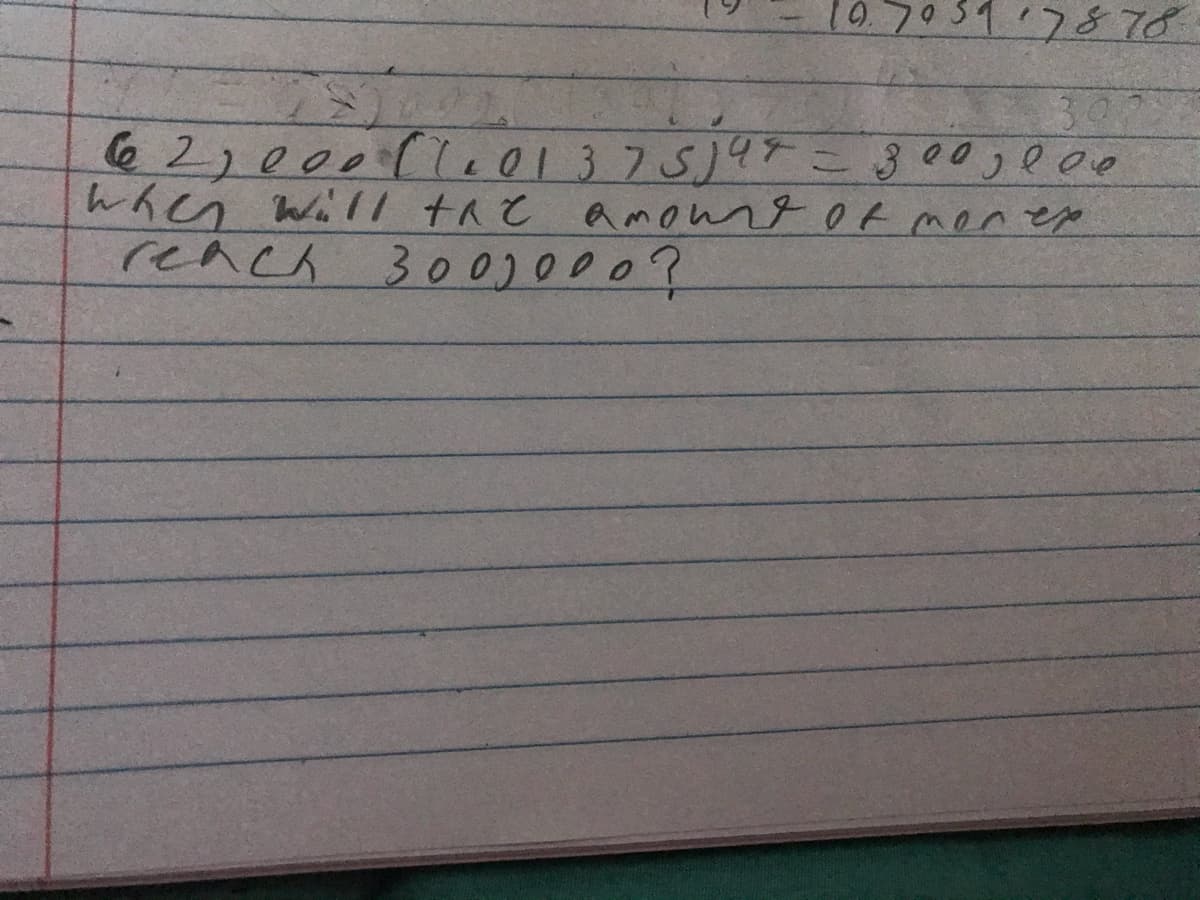 19 = 10.7059.7878
62,000(1.01375)4t = 300,000
when will the amount of money
reach 300,000?